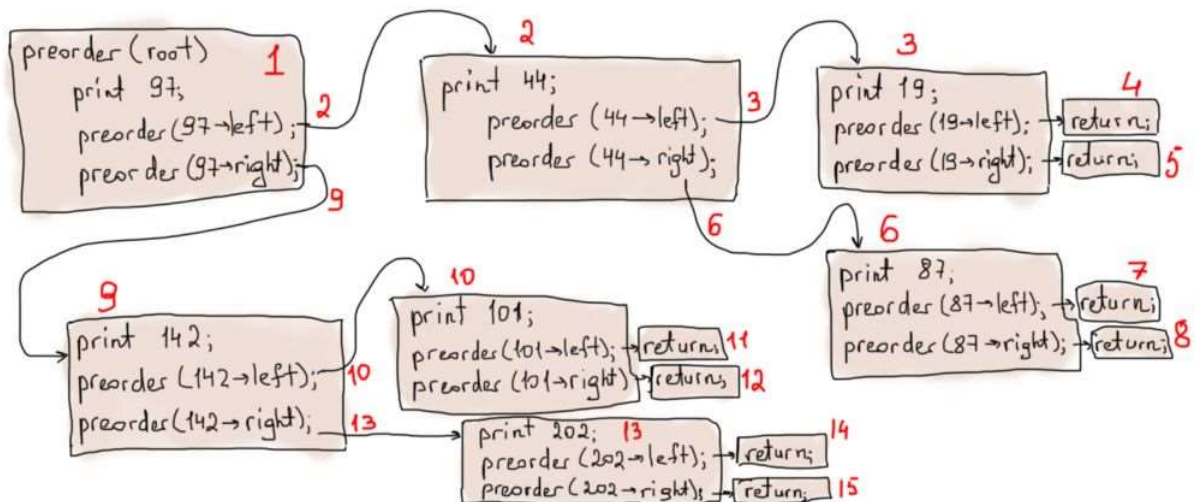 preorder (root)
1
print 97;
preorder (97→left);
2
preorder (97→right);
9
2
print 44;
preorder (44→left);
3
preorder (44→right);
6
3
print 19;
preorder (19→left);
return;
4
preorder (19→right);
return;
5
6
print 87;
preorder (87→left);
return;
7
preorder (87→right);
return;
8
9
print 142;
preorder (142→left);
10
preorder (142→right);
13
10
print 101;
preorder (101→left);
return;
11
preorder (101→right)
return;
12
print 202;
13
preorder (202→left);
return;
14
preorder (202→right);
return;
15